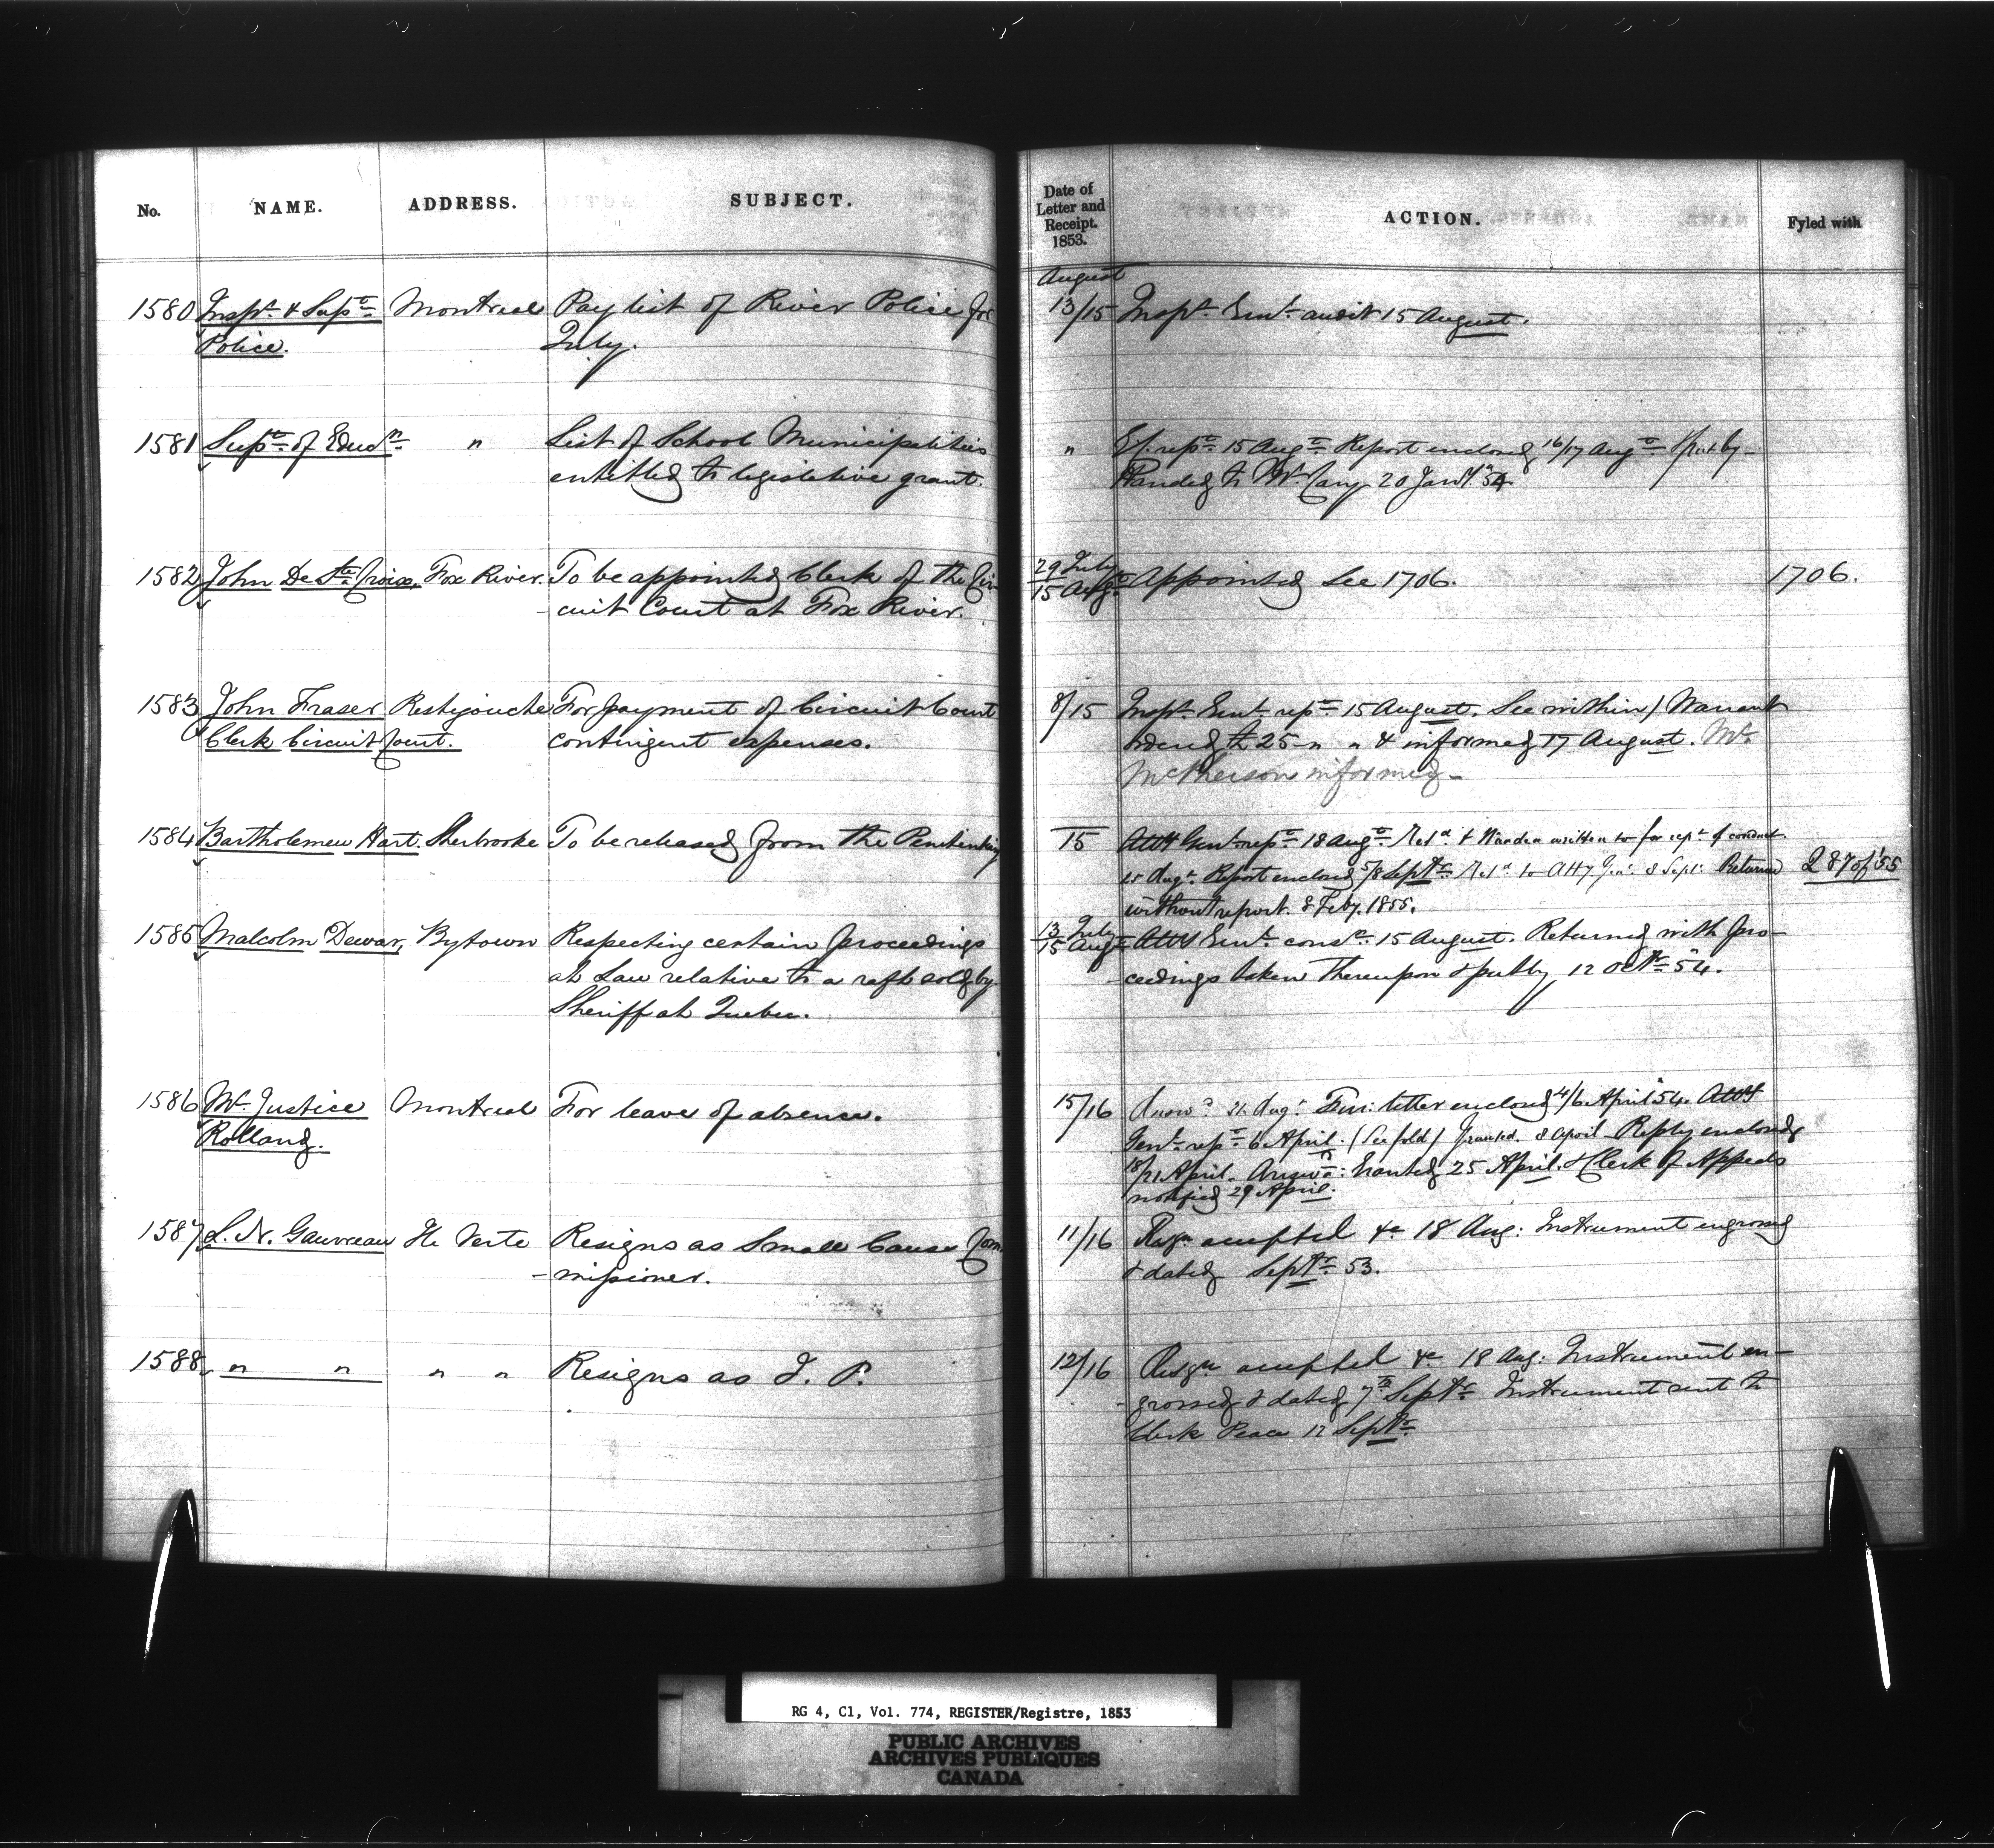 No. NAME. ADDRESS. SUBJECT.
Date of Letter and Receipt. 1853. ACTION. Fyled with
August
1580 Inspr. & Supt. Montreal Pay list of River Police for
Police. July.
13/15 Inspr. Genl. audit 15 August.
1581 Supt. of Educn. " List of School Municipalities
entitled to legislative grant.
" rept. 15 Augt. Report enclosed 16/17 Augt. & put by
Handed to Mr. 20 Jany. 54
1582 John De Ste. Croix, Fox River. To be appointed Clerk of the Cir-
-cuit Court at Fox River.
29 July
15 Augt. Appointed See 1706. 1706.
1583 John Fraser Restigouche For payment of Circuit Court
Clerk Circuit Court. contingent expenses.
8/15 Inspr. Genl. rept. 15 August. See within / Warrant
ordered £25 " " & informed 17 August. Mr.
McPherson informed
1584 Bartholemew Hart. Sherbrooke To be released from the Penitentiary
15 Atty Genl. rept. 18 Augt. Refd. & Warden written to for rept. of conduct
25 Augt. Report enclosed 5/8 Septr. Refd. to Atty Gen: 8 Sept: Returned 287 of '55
without report. 8 Feby. 1855.
1585 Malcolm Dewar, Bytown Respecting certain proceedings
at Law relative to a raft sold by
Sheriff at Quebec.
13 July
15 Augt. Atty Genl. 15 August. Returned with pro-
-ceedings taken thereupon & put by 12 Octr. 54.
1586 Mr. Justice Montreal For leave of absence.
Rolland.
15/16 Answd. 21. Augt. letter enclosed 4/6 April 54. Atty
Genl. rept. 6 April. (See fold) Granted. 8 April Reply enclosed
18/21 April. Answd: Granted 25 April. & Clerk of Appeals
notified 29 April.
1587 L. N. Gauvreau Ile Verte Resigns as Small Cause Com-
-missioner.
11/16 Resgn. accepted &c 18 Aug: Instrument engrossed
& dated Septr. 53.
1588 " " " " Resigns as J. P.
12/16 Resgn accepted &c 18 Aug: Instrument en-
-grossed & dated 7th Septr. Instrument sent to
Clerk Peace 12 Septr.
RG 4, C1, Vol. 774, REGISTER/Registre, 1853
PUBLIC ARCHIVES
ARCHIVES PUBLIQUES
CANADA